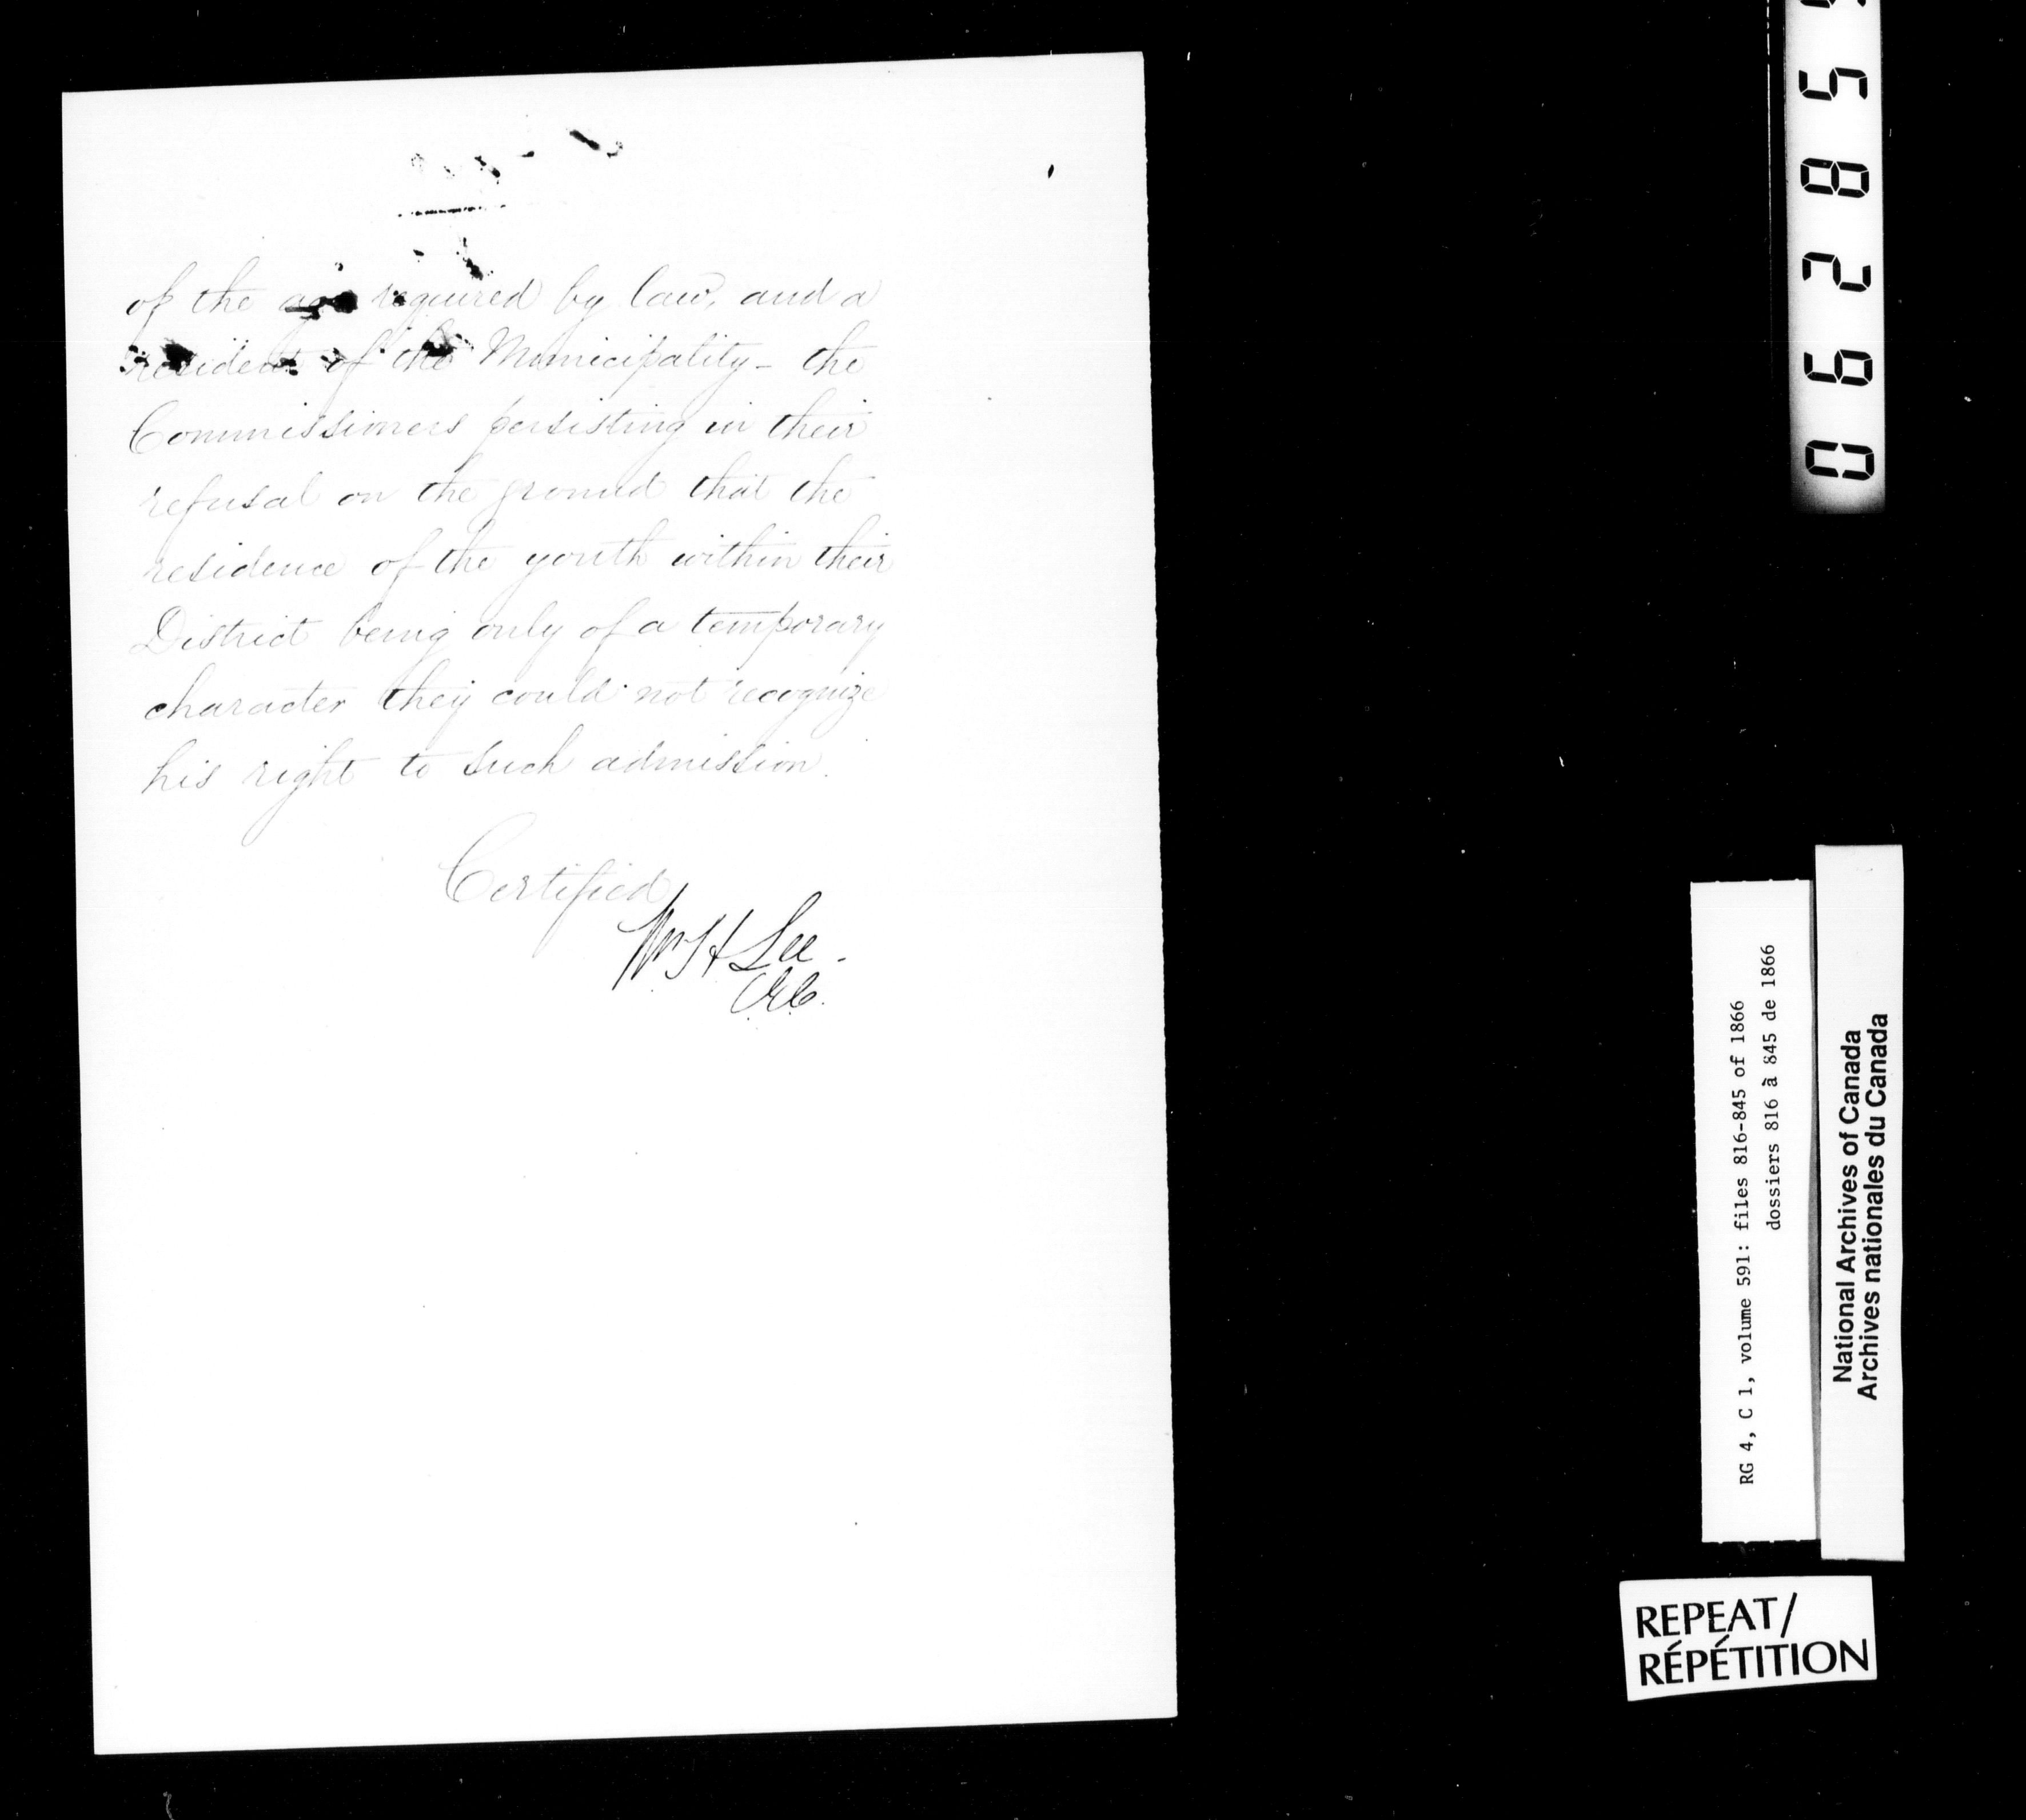 of the age required by law, and a
resident of the Municipality - the
Commissioners persisting in their
refusal on the ground that the
residence of the youth within their
District being only of a temporary
character they could not recognize
his right to such admission.
Certified
Wm H Lee -
CEC.
062855
RG 4, C 1, volume 591: files 816-845 of 1866
dossiers 816 à 845 de 1866
National Archives of Canada
Archives nationales du Canada
REPEAT/
RÉPÉTITION